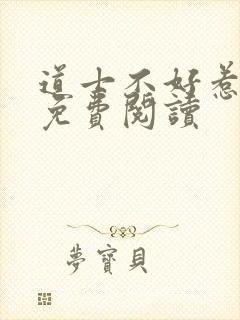 道士不好惹
免費閱讀
夢寶貝